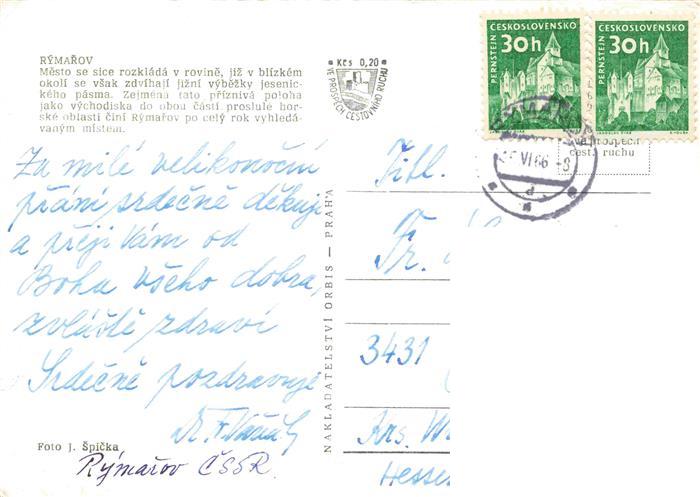 RÝMAŘOV
Město se sice rozkládá v rovině, již v blízkém
okolí se však zdvíhají jižní výběžky jesenic-
kého pásma. Zejména tato příznivá poloha
jako východiska do obou částí proslulé hor-
ské oblasti činí Rýmařov po celý rok vyhledá-
vaným místem.
Kčs 0,20
VE PROSPĚCH CESTOVNÍHO RUCHU
ČESKOSLOVENSKO
PERNŠTEJN
30h
ČESKOSLOVENSKO
PERNŠTEJN
30h
ve prospěch
cest. ruchu
VI 66 -8
Za milé velikonoční
přání srdečně děkuji
a přeji Vám od
Boha všeho dobra,
zvláště zdraví
Srdečně pozdravuje
Foto J. Špička
Rýmařov ČSSR.
NAKLADATELSTVÍ ORBIS — PRAHA
Titl.
Fr.
3431
Krs. W
Hesse